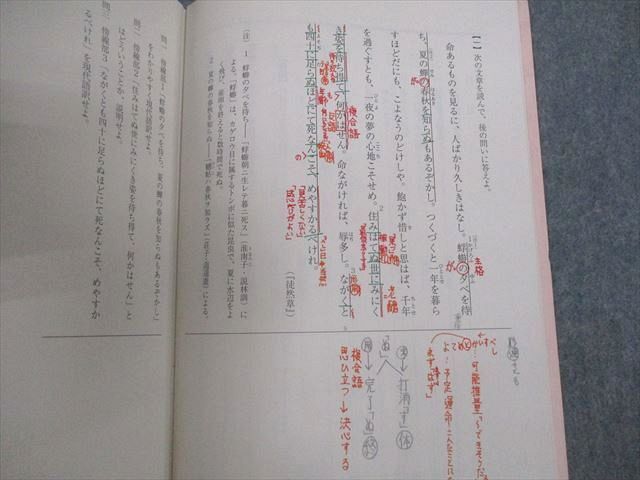 【二】 次の文章を読んで、後の問いに答えよ。
命あるものを見るに、人ばかり久しきはなし。蜉蝣の夕べを待
ち、夏の蟬の春秋を知らぬもあるぞかし。つくづくと一年を暮ら
すほどだにも、こよなうのどけしや。飽かず惜しと思はば、千年
を過ぐすとも、一夜の夢の心地こそせめ。住みはてぬ世にみにく
き姿を待ち得て、何かはせん。命ながければ、辱多し。ながくと
も四十に足らぬほどにて死なんこそ、めやすかるべけれ。
(『徒然草』)
(注) 1 蜉蝣の夕べを待ち―「蜉蝣朝ニ生レテ暮ニ死ス」(淮南子・説林訓)に
よる。「蜉蝣」は、カゲロウ目に属するトンボに似た昆虫で、夏に水辺をよ
く飛び、産卵を終えると数時間で死ぬ。
2 夏の蟬の春秋を知らぬ―「蟪蛄ハ春秋ヲ知ラズ」(荘子・逍遥遊)による。
問一 傍線部1「蜉蝣の夕べを待ち、夏の蟬の春秋を知らぬもあるぞかし」
をわかりやすく現代語訳せよ。
問二 傍線部2「住みはてぬ世にみにくき姿を待ち得て、何かはせん」と
はどういうことか、説明せよ。
問三 傍線部3「ながくとも四十に足らぬほどにて死なんこそ、めやすか
るべけれ」を現代語訳せよ。
主格
が
複合語
の
可能推量
予定
運命
「ぬ」
打消「ず」体
完了「ぬ」終
複合語
思ひ立つ→決心する